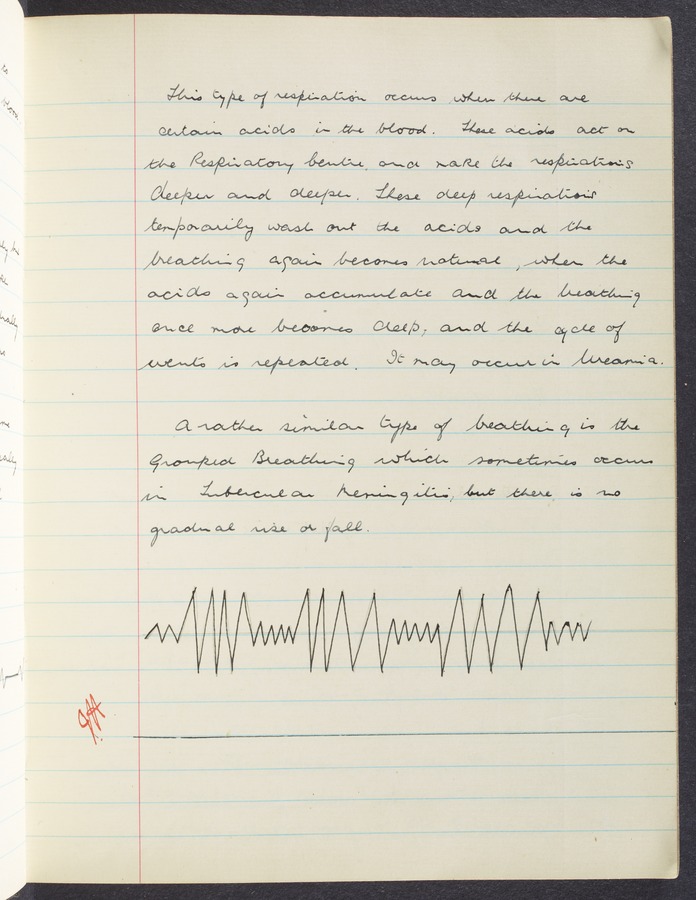 This type of respiration occurs when there are
certain acids in the blood. These acids act on
the Respiratory Centre, and make the respirations
deeper and deeper. These deep respirations
temporarily wash out the acids and the
breathing again becomes natural, when the
acids again accumulate and the breathing
once more becomes deep, and the cycle of
events is repeated. It may occur in Uraemia.
A rather similar type of beathing is the
Grouped Breathing which sometimes occurs
in Tubercular Meningitis, but there is no
gradual rise or fall.